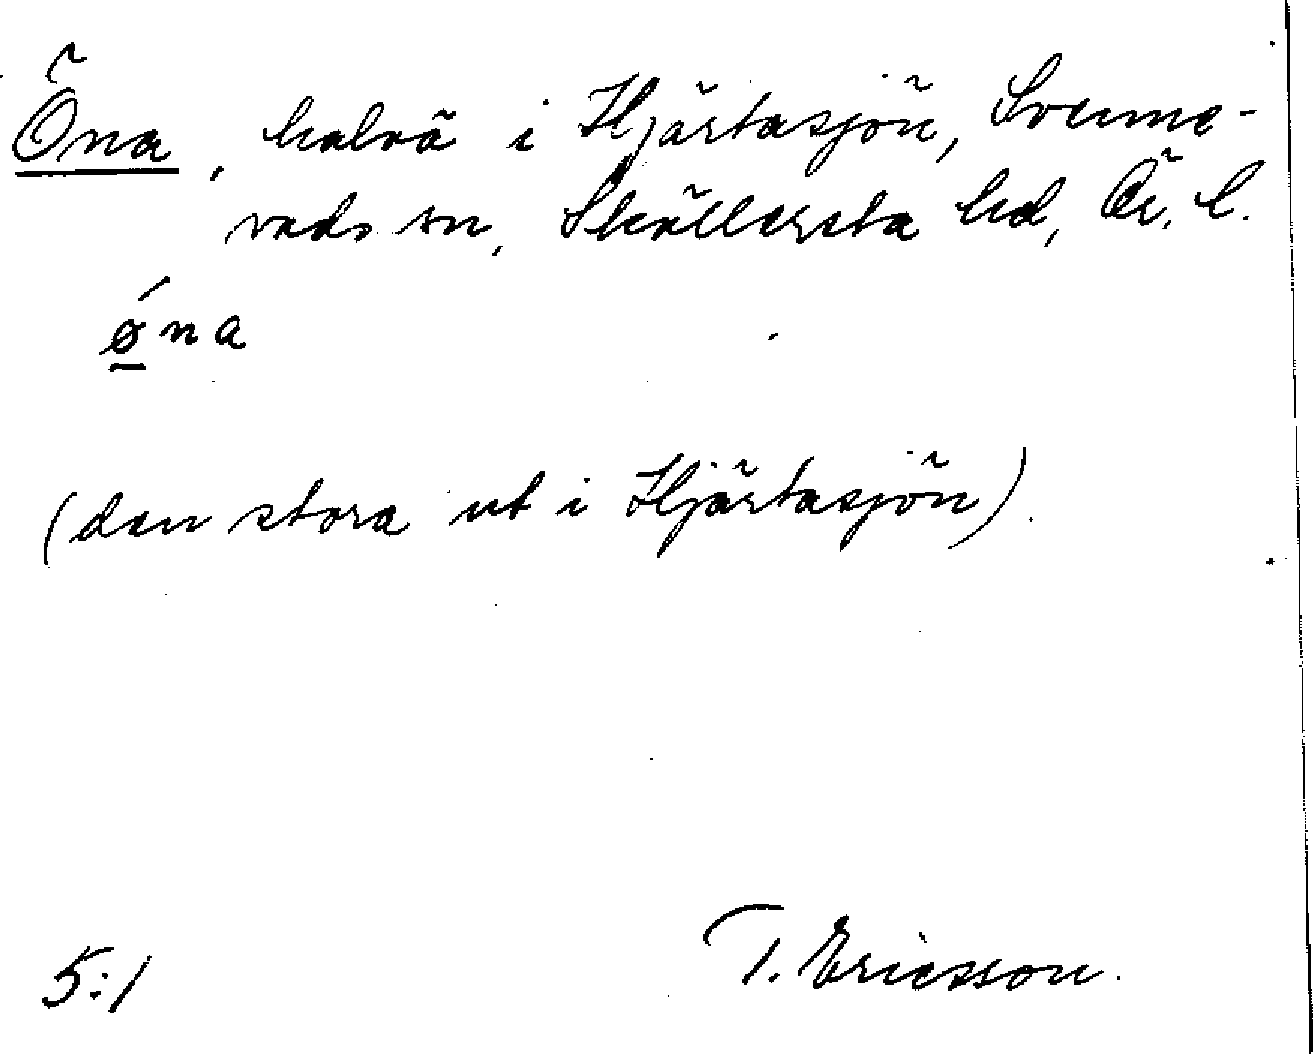 Öna, halvö i Hjärtasjön, Svenne-
vads sn, Sköllersta hd, Ör. l.
ǿna
(den stora ut i Hjärtasjön).
5:1
T. Ericsson.